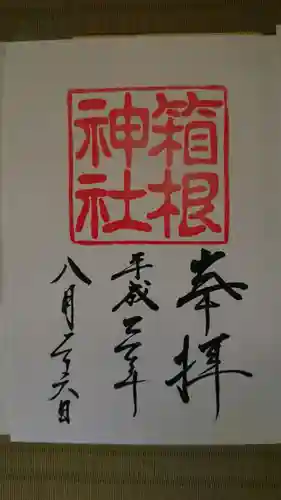 箱根
神社
奉拝
平成二二年
八月二十六日